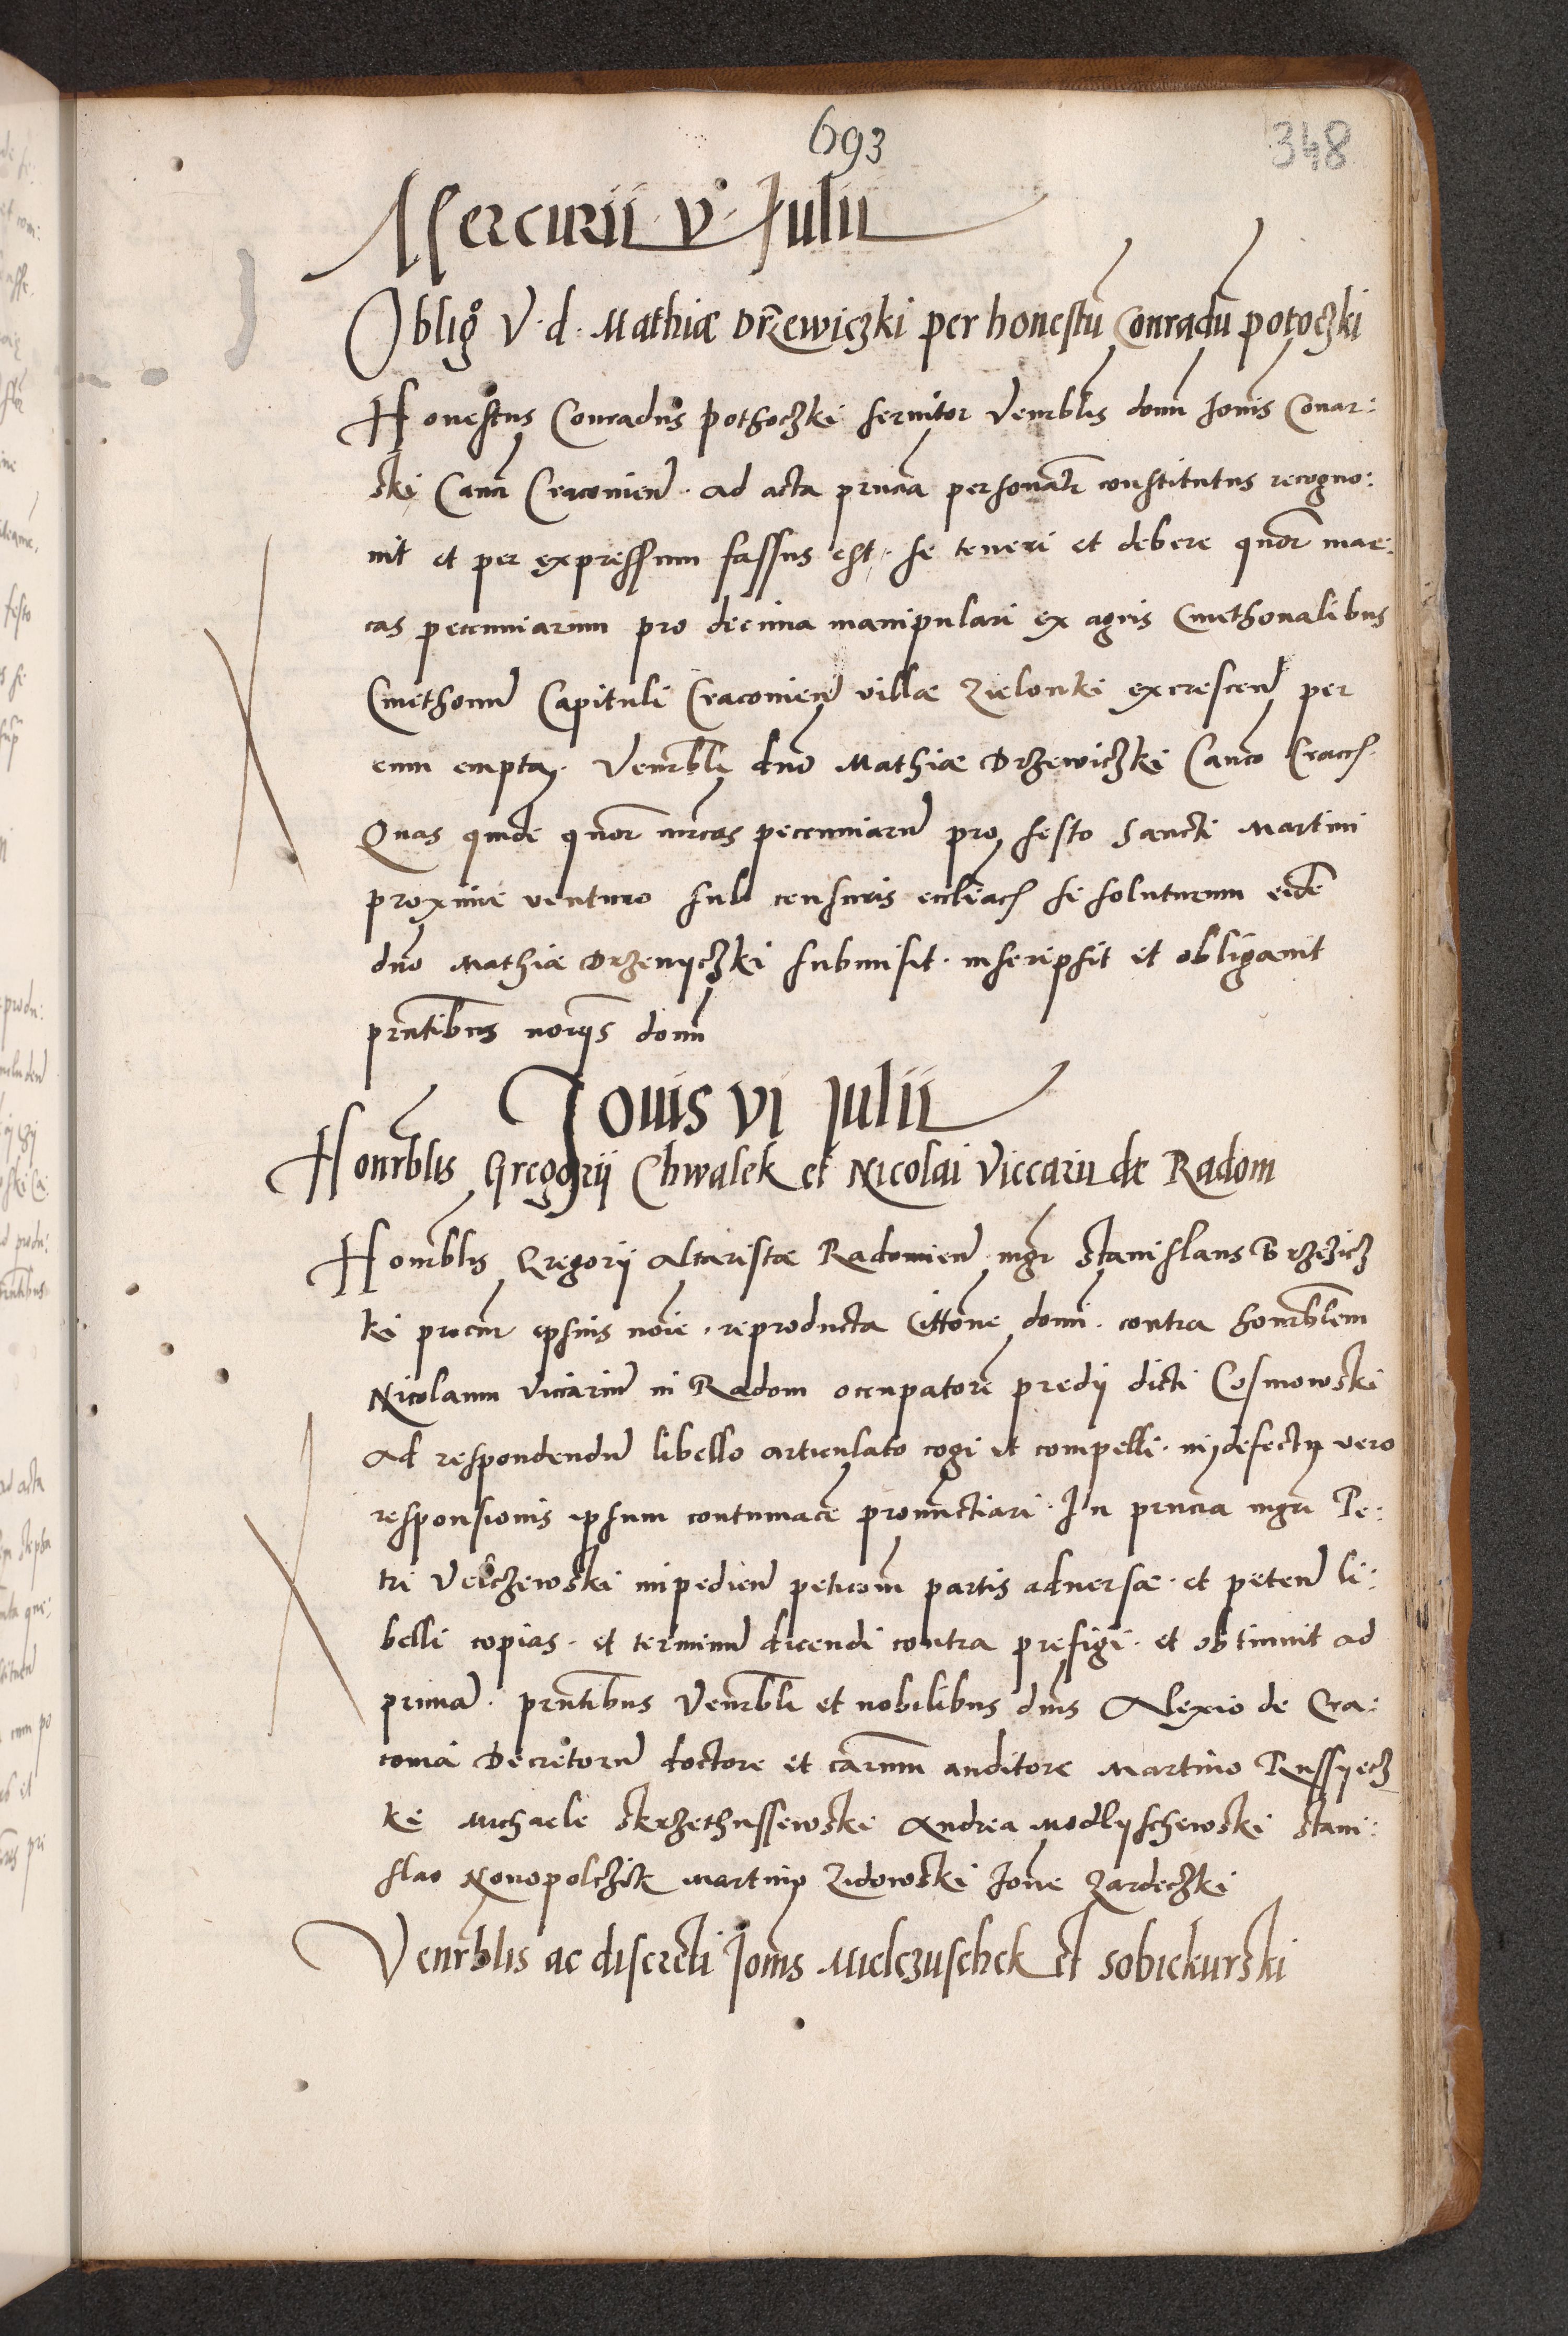 693
348
Mercurii v Julii
Oblig° V. d. Mathiæ Drzewiczki per honestũ Conradũ potoczki
Honestus Conradus Pothoczki seruitor Venrblis domi Joñis Conar:
ski Canci Cracovieñ. ad acta pñcia personalr constitutus recogno:
uit et per expressum fassus est. se teneri et debere quor mar:
cas pecuniarum pro decima manipulari ex agris Cmethonalibus
Cmethonũ Capituli Cracovieñ villæ Zielonki excresceñ per
eum empta. Venrbli dno Mathiæ Drzewiczki Canco Cracs.
Quas quidē quor mrcas pecuniarũ pro festo Sancti Martini
proxime venturo sub censuris ecclīacs se soluturum eidē
dño Mathiæ Drzewyczki submisit. inscripsit et obligauit
pñtibus noriis domi
Jouis vi Julii
Honrblis Gregorii Chwalek et Nicolai Viccarii de Radom
Honrblis Gregorii Altaristæ Radomieñ mgr Stanislaus Brzezicz
ki procur ipsius noīe. reproducta Cittōne domi. contra honrblem
Nicolaum viciariũ in Radom occupatorē predii dicti Cosmowski
ad respondendũ libello articulato cogi et compelli. in defectu vero
responsionis ipsum contumacē pronũctiari. In pñcia mgri Pe:
tri Velczewski impedieñ peticoīm partis aduersæ. et peteñ li:
belli copias. et terminũ dicendi contra prefigi. et obtinuit ad
primã. pñtibus Venrbli et nobilibus dnis Alexio de Cra:
couia Decretorũ doctore et carum auditore Martino Russyecz
ki Michaele Skrzethussewski Andrea Modlyschewski Stani:
slao Nouopolczik Martino Zidowski Joñe Zardeczki
Venrblis ac discreti Joñis Mielczuschek et Sobiekurski